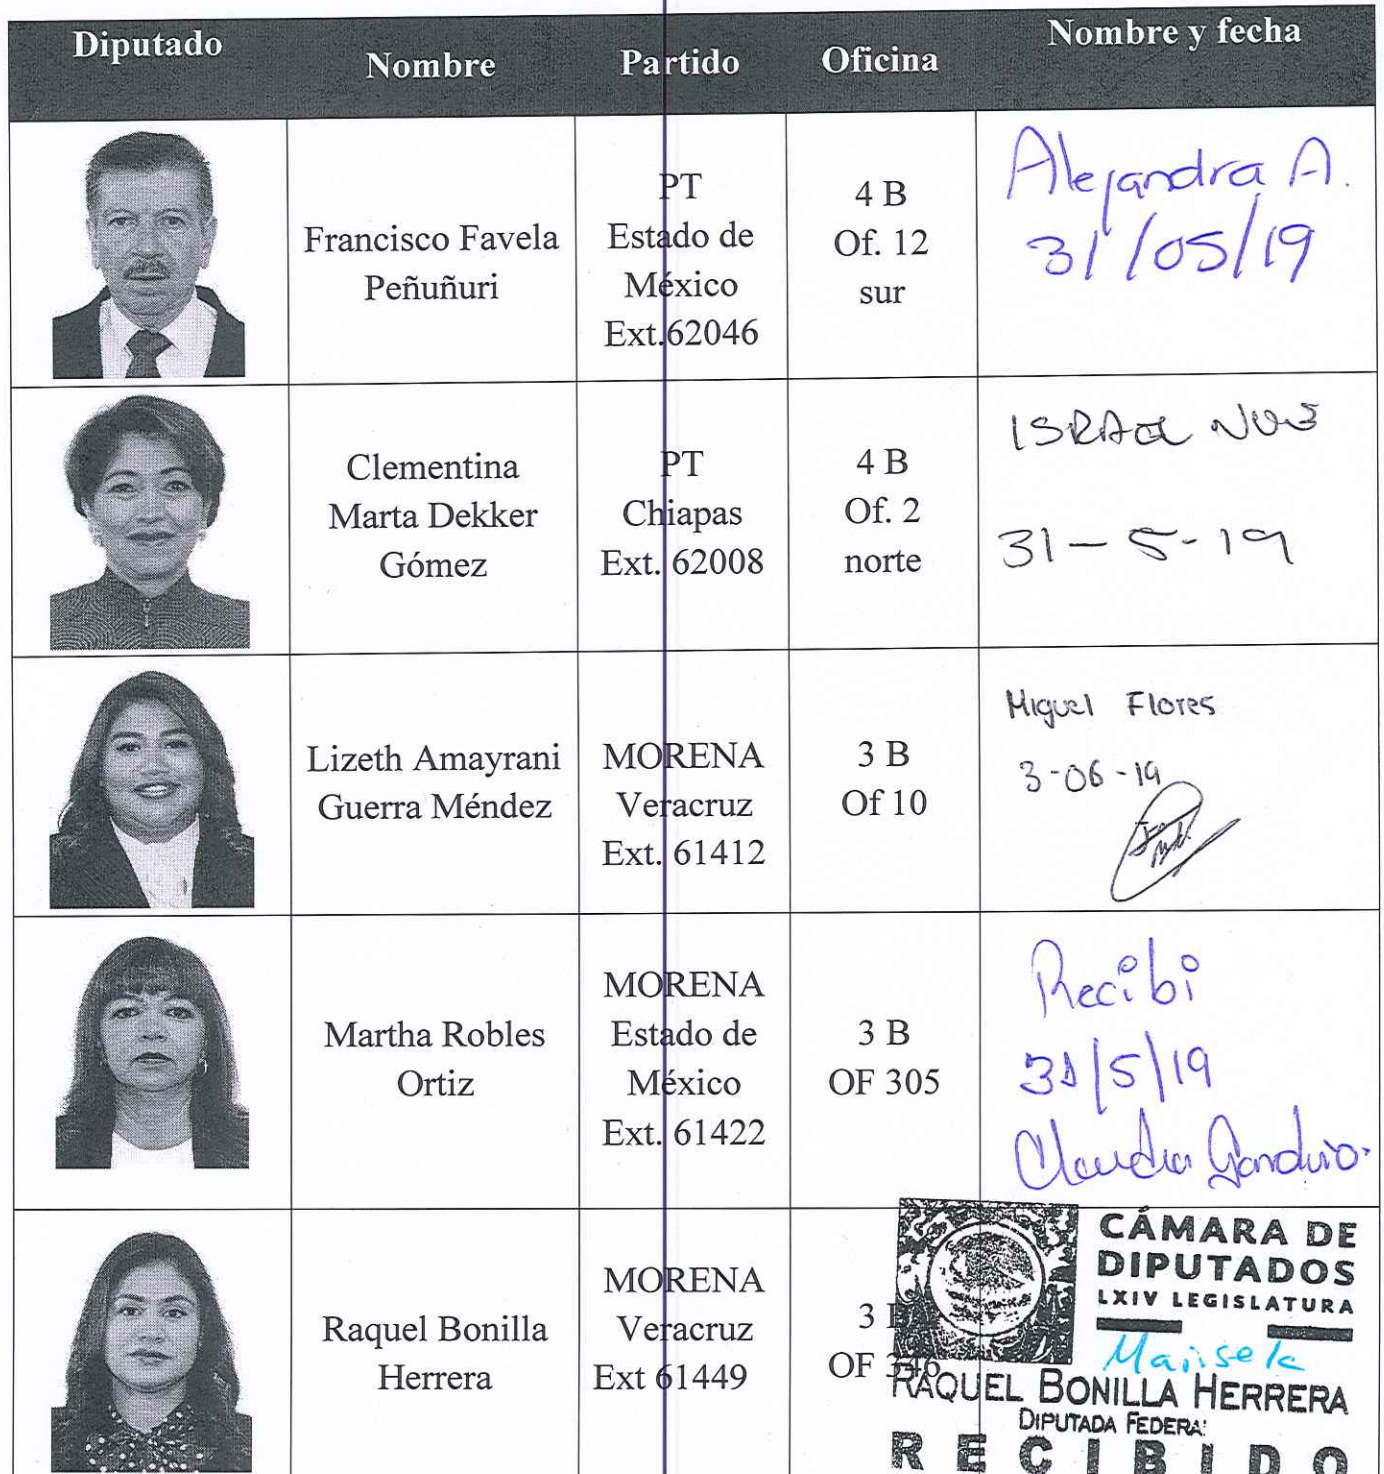 Diputado Nombre Partido Oficina Nombre y fecha
Francisco Favela
Peñuñuri
PT
Estado de
México
Ext.62046
4 B
Of. 12
sur
Alejandra A.
31/05/19
Clementina
Marta Dekker
Gómez
PT
Chiapas
Ext. 62008
4 B
Of. 2
norte
ISRAEL
31-5-19
Lizeth Amayrani
Guerra Méndez
MORENA
Veracruz
Ext. 61412
3 B
Of 10
Miguel Flores
3-06-19
Martha Robles
Ortiz
MORENA
Estado de
México
Ext. 61422
3 B
OF 305
Recibi
31/5/19
Claudia Garduño.
Raquel Bonilla
Herrera
MORENA
Veracruz
Ext 61449
3 B
OF 346
CÁMARA DE
DIPUTADOS
LXIV LEGISLATURA
Marisela
RAQUEL BONILLA HERRERA
DIPUTADA FEDERAL
RECIBIDO